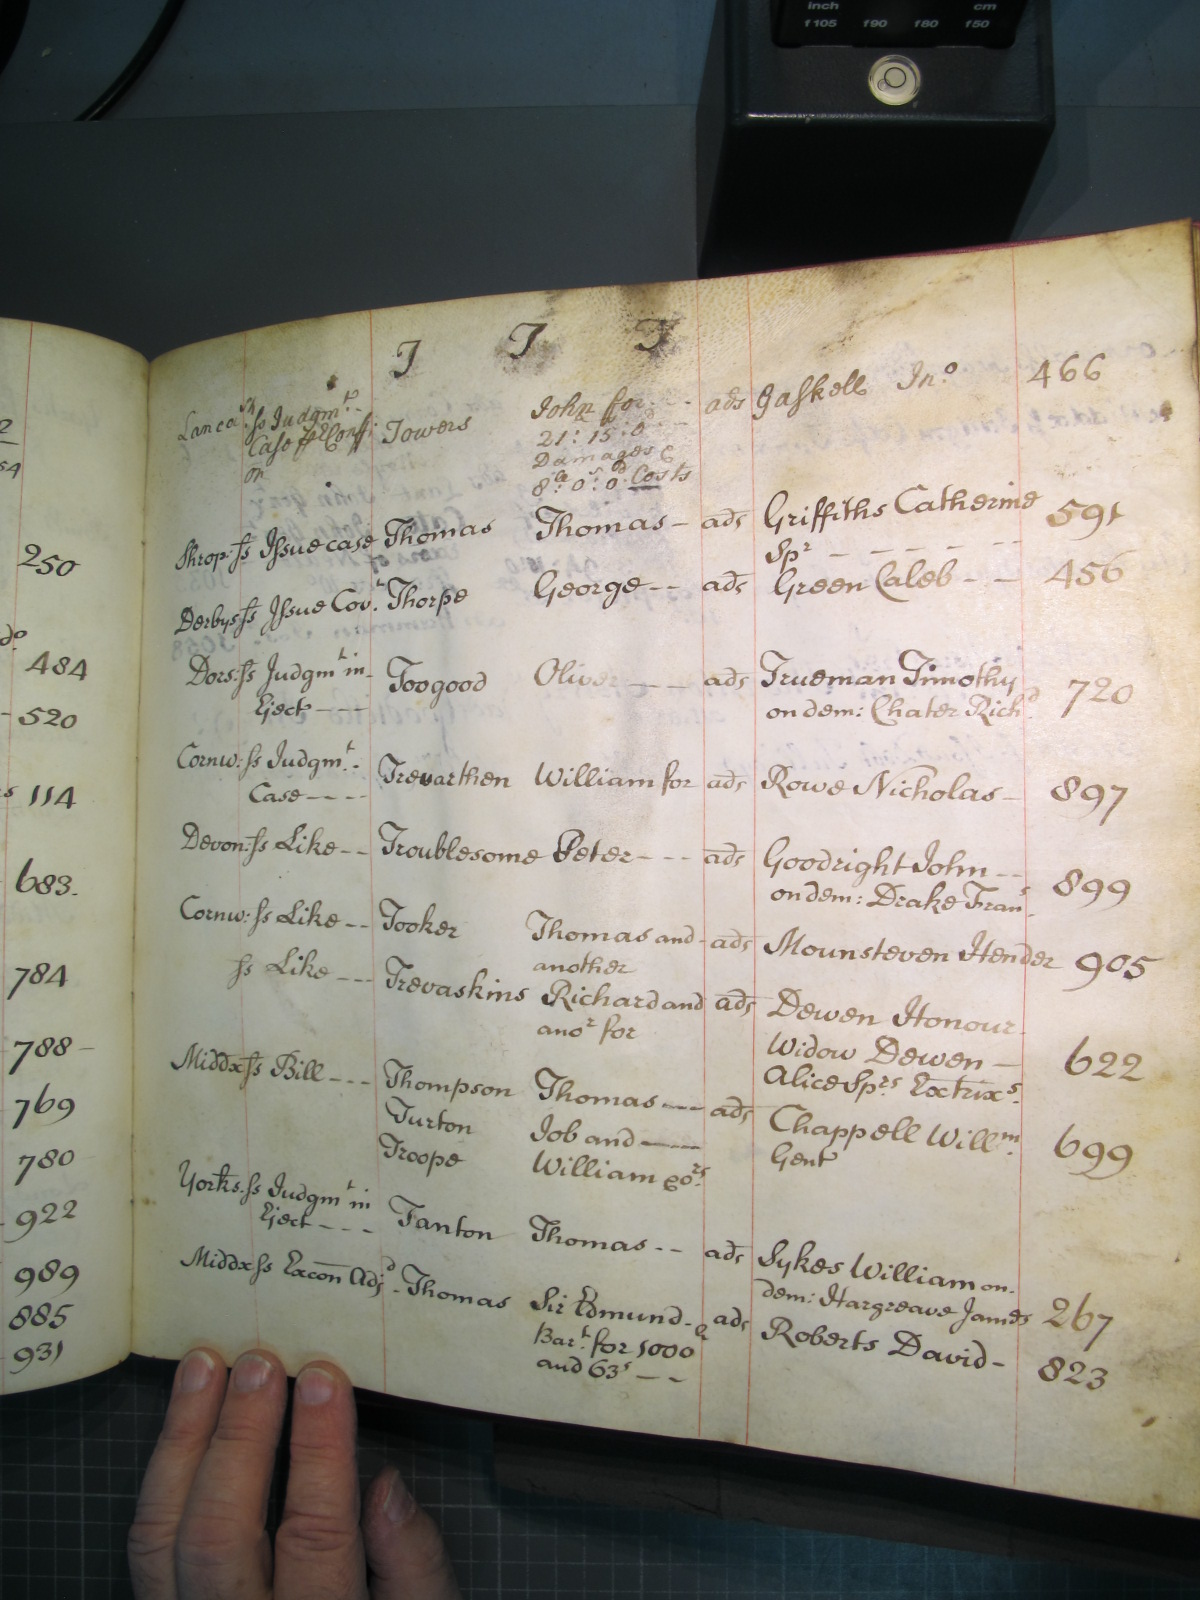 inch cm
f105 f90 f80 f50
T T T
Lancash: ss Judgmt. Towers John for ads Gaskell Jno. 466
Case 21: 15: 0
on Damages &
8: 0: 0: Costs
Shrop: ss Issue case Thomas Thomas - ads Griffiths Catherine 591
Spr - - - - -
Derbys: ss Issue Covt. Thorpe George - - ads Green Caleb - - 456
Dors: ss Judgmt in - Toogood Oliver - - - ads Trueman Timothy 720
Eject - - - on dem: Chater Richd.
Cornw: ss Judgmt. - Trevarthen William for ads Rowe Nicholas - 897
Case - - - -
Devon: ss Like - - Troublesome Peter - - - ads Goodright John - - 899
on dem: Drake Frans.
Cornw: ss Like - - Tooker Thomas and - ads Mounsteven Hender 905
another
ss Like - - - Trevaskins Richard and ads Dewen Honour
anor for Widow Dewen - 622
Alice Sprs Extrixs.
Middx ss Bill - - - Thompson Thomas - - - ads Chappell Willm. 699
Turton Job and - - - Gent
Troope William Eors.
Yorks: ss Judgmt in Tanton Thomas - - ads Sykes William on - 267
Eject - - - dem: Hargreave James
Middx ss Excon Adjd. - Thomas Sir Edmund - ads Roberts David - 823
Bart. for 1000
and 63s - -
250
do
484
- 520
114
683.
784
788 -
769
780
922
989
885
931